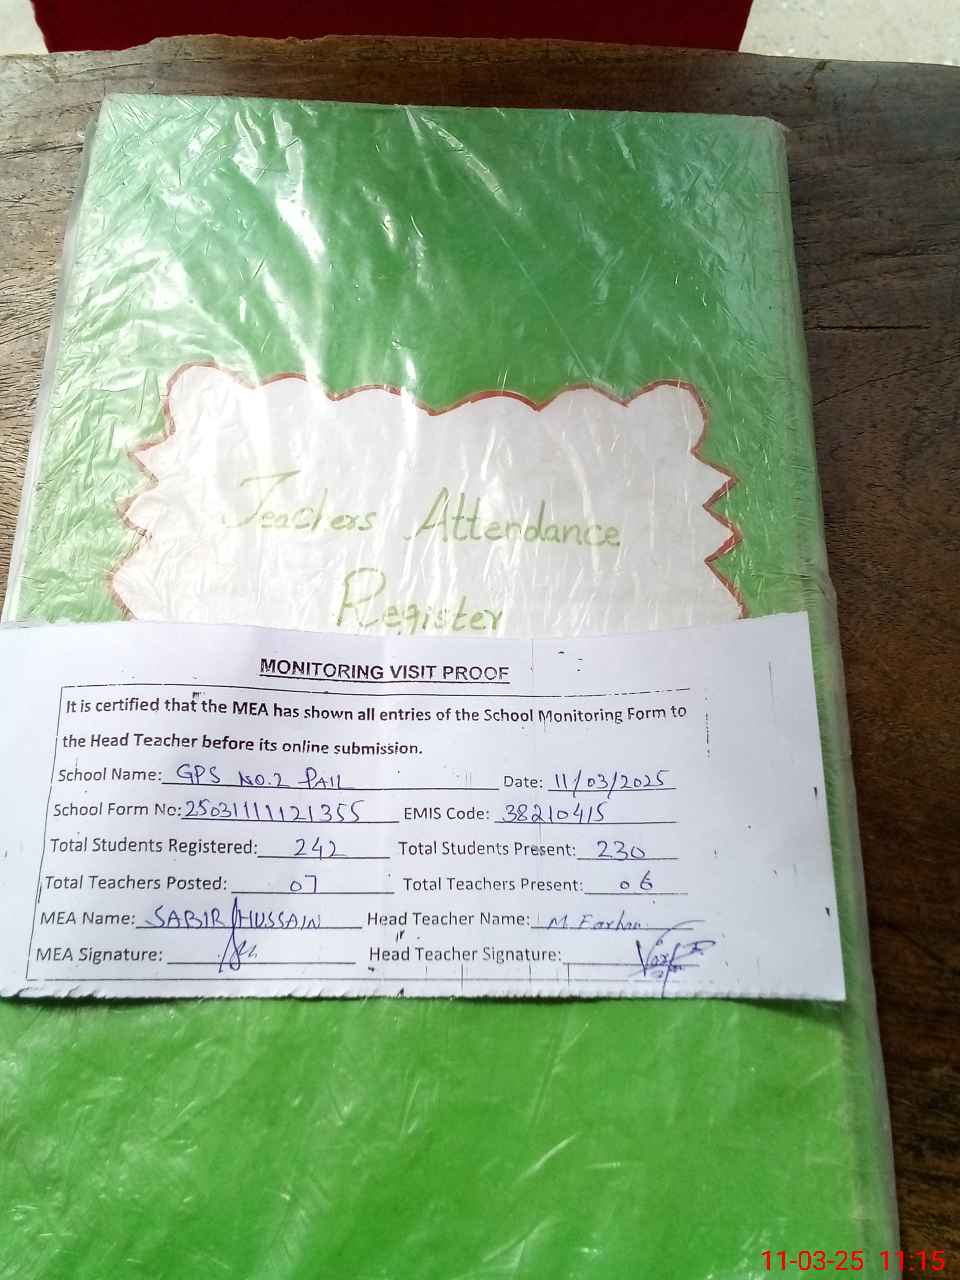 Teachers Attendance
Register
MONITORING VISIT PROOF
It is certified that the MEA has shown all entries of the School Monitoring Form to
the Head Teacher before its online submission.
School Name: GPS NO.2 PAIL Date: 11/03/2025
School Form No: 25031111121355 EMIS Code: 38210415
Total Students Registered: 242 Total Students Present: 230
Total Teachers Posted: 07 Total Teachers Present: 06
MEA Name: SABIR HUSSAIN Head Teacher Name: M. Farhan
MEA Signature: Head Teacher Signature:
11-03-25 11:15